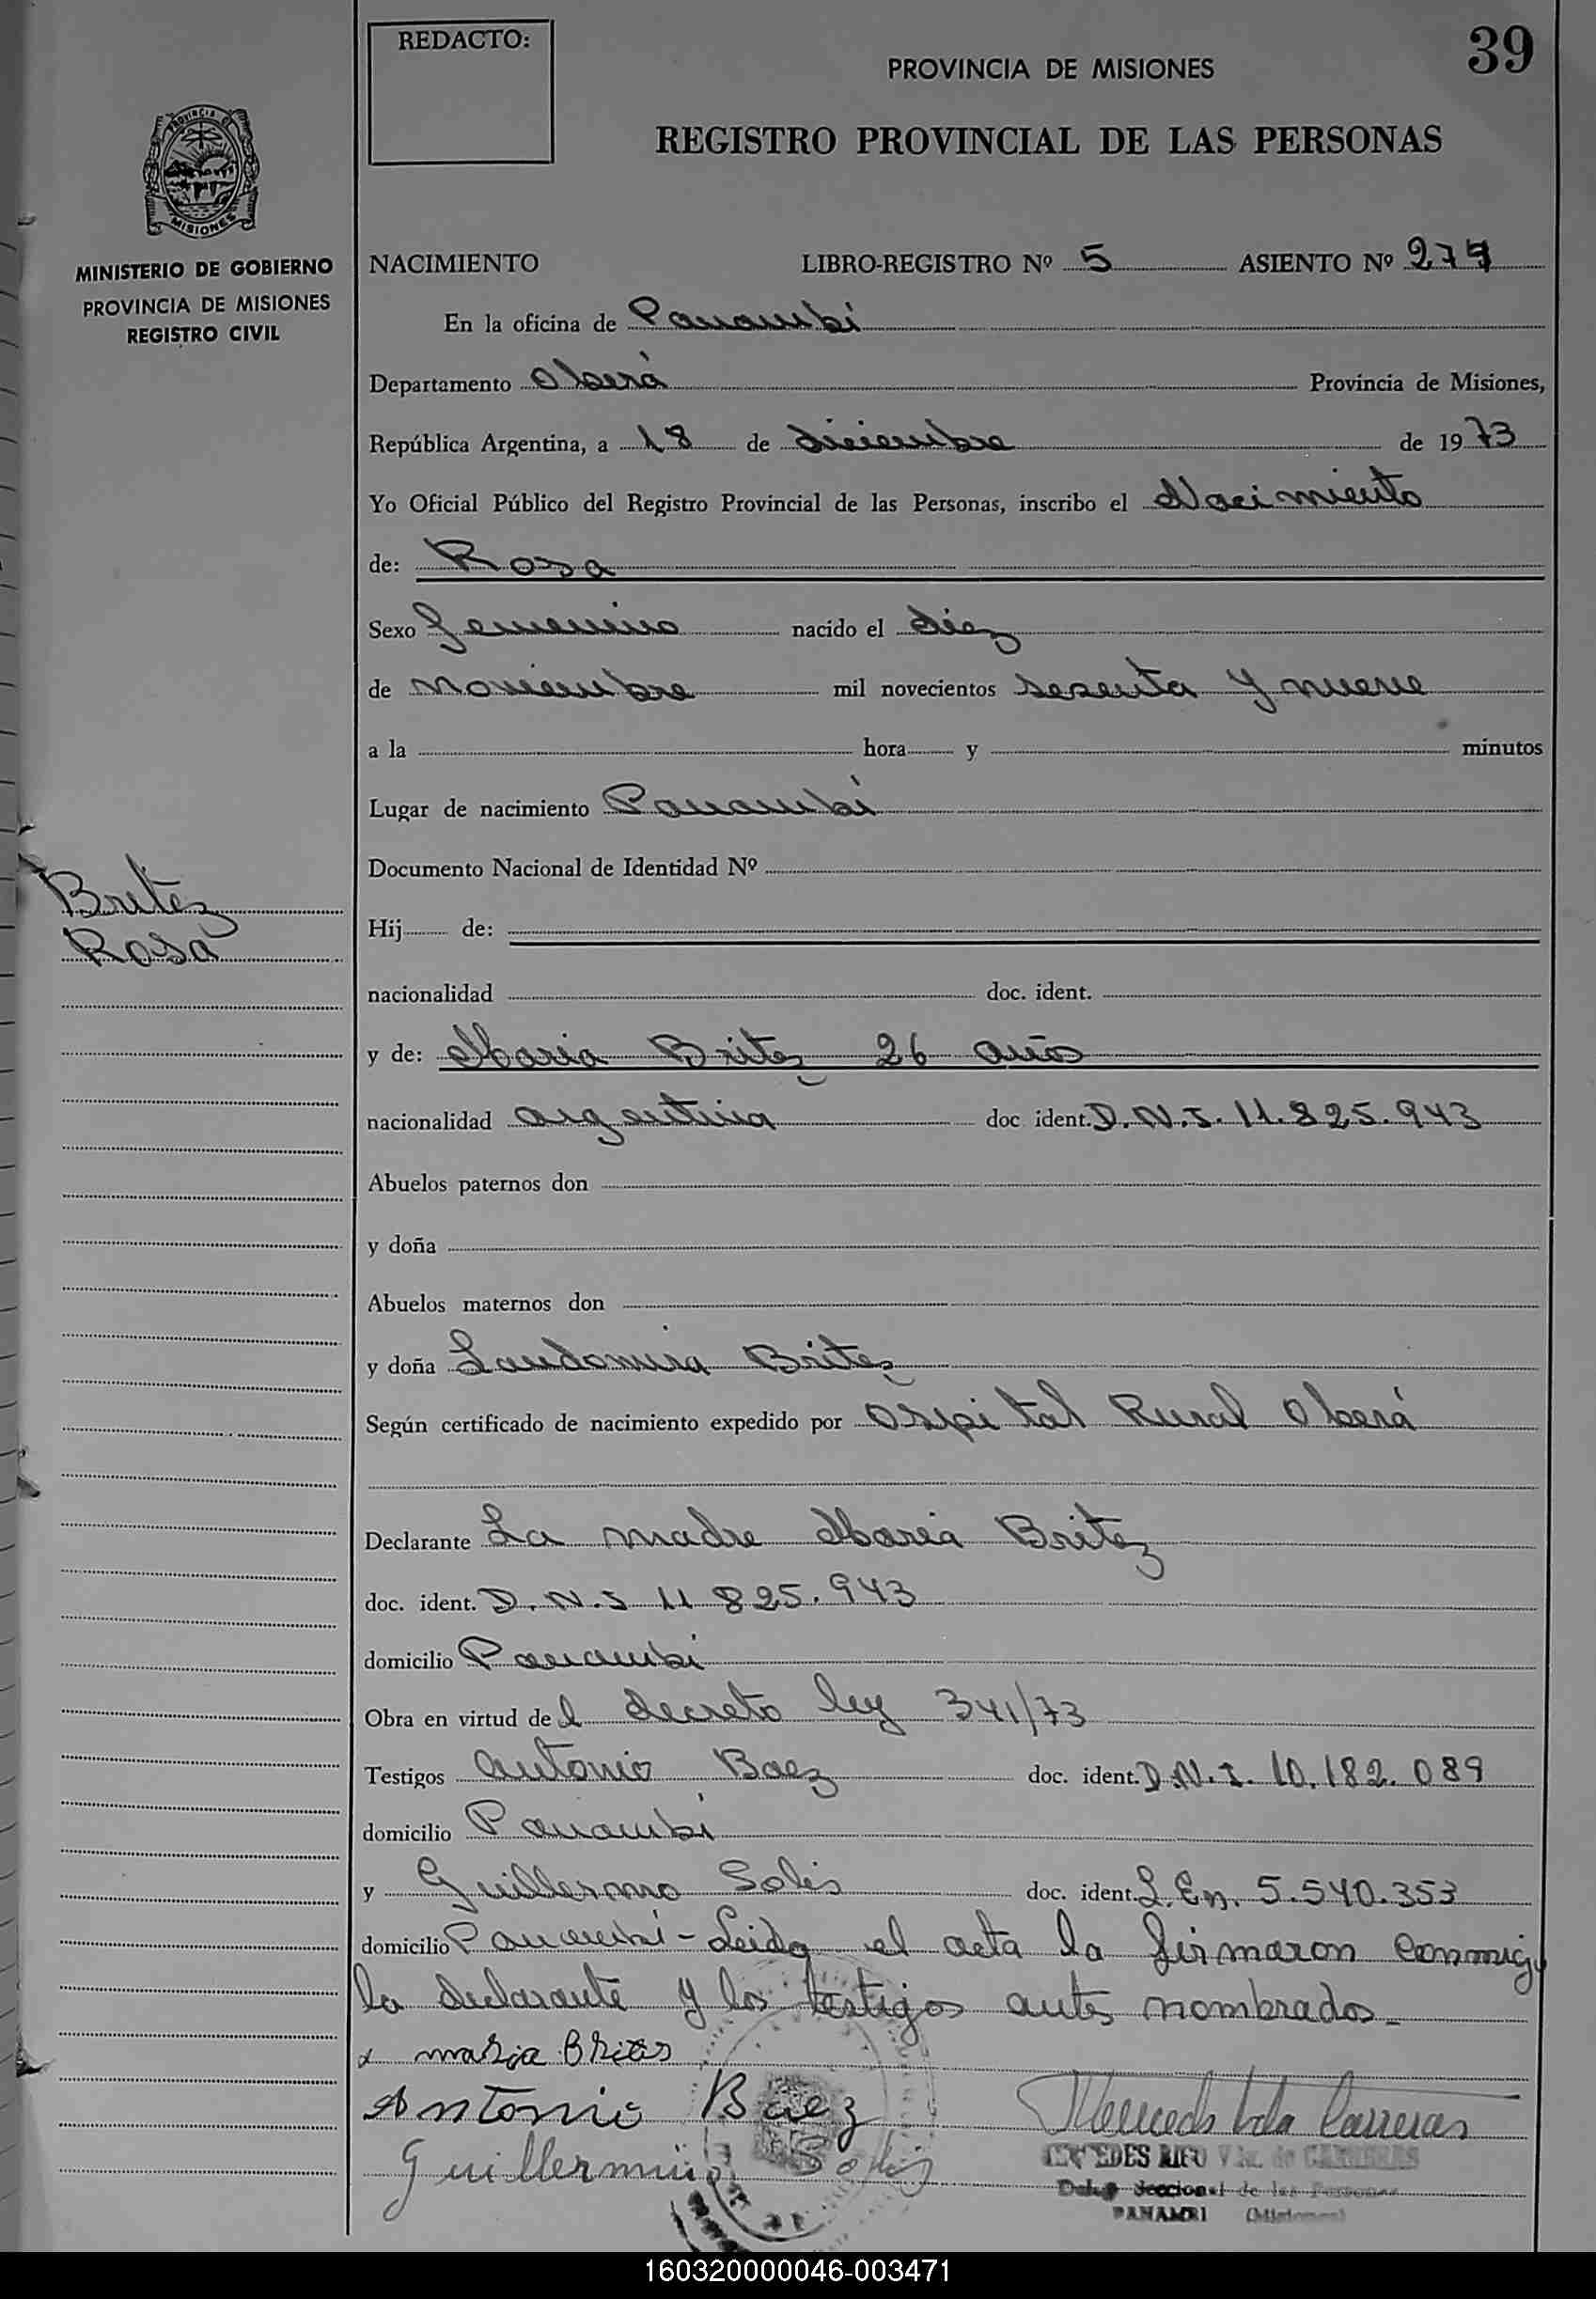 REDACTO:
39
PROVINCIA DE MISIONES
REGISTRO PROVINCIAL DE LAS PERSONAS
PROVINCIA DE
MISIONES
MINISTERIO DE GOBIERNO
PROVINCIA DE MISIONES
REGISTRO CIVIL
NACIMIENTO LIBRO-REGISTRO Nº 5 ASIENTO Nº 277
En la oficina de Panambí
Departamento Oberá Provincia de Misiones,
República Argentina, a 18 de diciembre de 1973
Yo Oficial Público del Registro Provincial de las Personas, inscribo el Nacimiento
de: Rosa
Sexo Femenino nacido el diez
de noviembre mil novecientos sesenta y nueve
a la hora y minutos
Lugar de nacimiento Panambí
Documento Nacional de Identidad Nº
Britez
Rosa
Hij de:
nacionalidad doc. ident.
y de: Maria Britez 26 años
nacionalidad argentina doc ident. D.N.I. 11.825.943
Abuelos paternos don
y doña
Abuelos maternos don
y doña Laudomira Britez
Según certificado de nacimiento expedido por Ospital Rural Oberá
Declarante La madre Maria Britez
doc. ident. D.N.I 11 825.943
domicilio Panambí
Obra en virtud de l decreto ley 341/73
Testigos Antonio Baez doc. ident. D.N.I. 10.182.089
domicilio Panambí
y Guillermo Solis doc. ident. L.En. 5.540.353
domicilio Panambí - Leida el acta la firmaron conmigo
la declarante y los testigos antes nombrados.
x maria Brites
Antonio Baez
Guillermino Solis
MERCEDES RIFO V da. de CARRERAS
Deleg Seccional de las Personas
PANAMBI (Misiones)
160320000046-003471